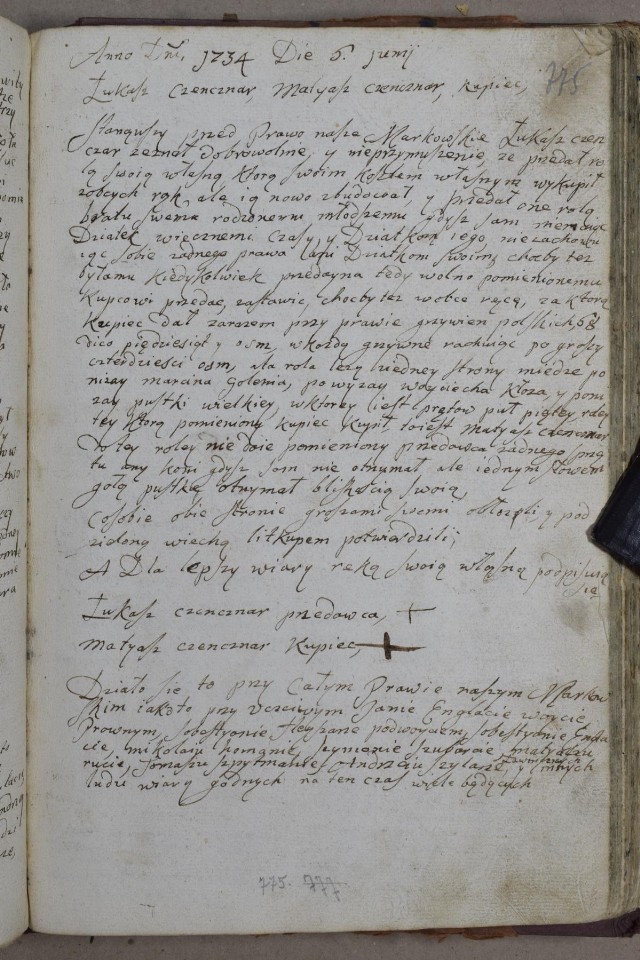 Anno Dni, 1734 Die 6. junij
775
Łukasz Czencznar, Matyasz Czencznar, kupiec,
Stanąwszy przed Prawo nasze Markowskie Łukasz czen
czar zeznał dobrowolnie, y nieprzymuszenie, ze przedał ro
lą swoią własną ktorą swoim kosztem własnym wykupił
zobcych rąk, ale ią nowo zbudował, y przedał one rolą
bratu swemu rodzonemu młodszemu gdysz sam niema
Dziatek wiecznemi czasy, y Dziatkom iego, niezachowu
iąc sobie zadnego prawa tak Dziatkom swoim, chocby tez
byłamu kiedykolwiek przedayna tedy wolno pomienionemu
kupcowi przedac, zastawic, chocby tez wobce ręce, za ktorą
kupiec dał zarazem przy prawie grzywien polskich 58
dico pięcdziesiąt y osm, w kozdy grzywne rachuiąc po groszy
czterdziesci osm, a ta rola lezy iedney strony miedze po
nizey marcina golenia, powyzay woyciecha kłoza, y poni
zay pustki wielkiey, wktorey iest prętow puł piętey roley
tey ktorą pomieniony kupiec kupił toiest Matyasz czencznar
Do tey roley nie daie pomieniony przedawca zadnego
tu any koni gdysz sam nie otrzymał ale iednym słowem
gołą pustkę otrzymał bliskoscią swoią,
Cosobie obie stronie groszami swemi obłozyli y pod
zieloną wiechą litkupem potwierdzili;
A Dla lepszy wiary ręką swoią własną podpisuią
się
Łukasz czencznar przedawca, +
Matyasz czencznar Kupiec, +
Działo się to przy Całym Prawie naszym Markow
skim iakoto przy Vczciwym Janie Englacie woycie
Prawnym, sobestyanie podwoycem, sobestyanie Engla
cie, mikołaiu homanie, szymanie szuberze, matyaszu
rucie, Tomaszu szpytmanie, Andrzeiu szylarze, y innych
ludzi wiary godnych na ten czas wiele będących
775. 777